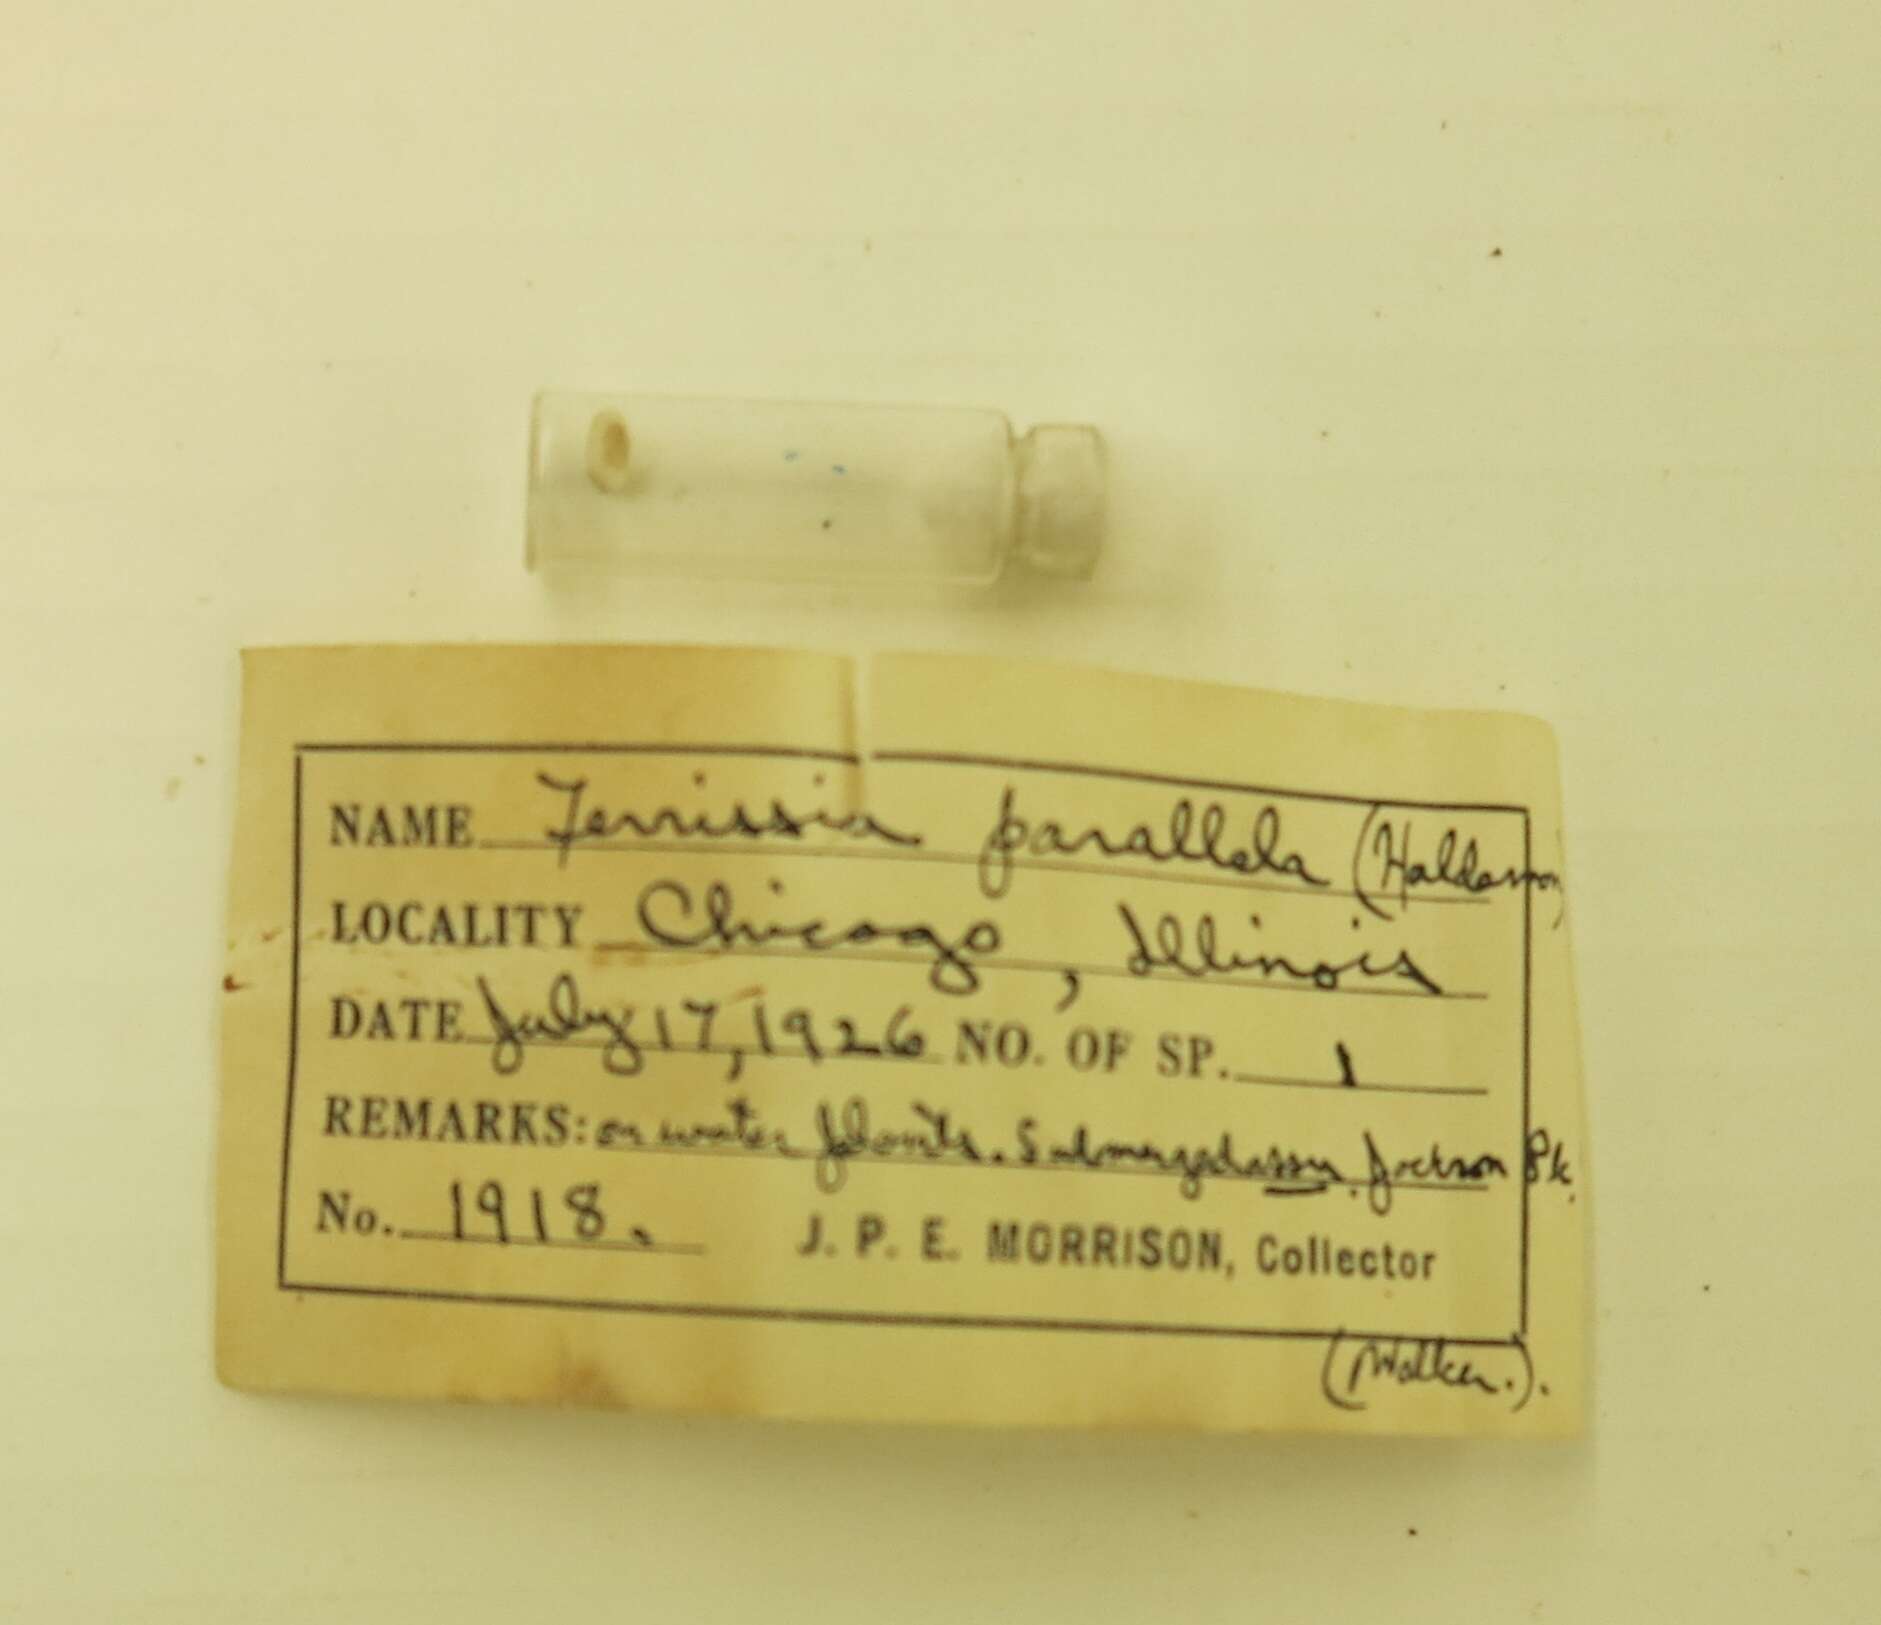 NAME Ferrissia parallela (Haldeman)
LOCALITY Chicago, Illinois
DATE July 17, 1926 NO. OF SP. 1
REMARKS: on water plants. Jackson Pk.
No. 1918.
J. P. E. MORRISON, Collector
(Walker.).